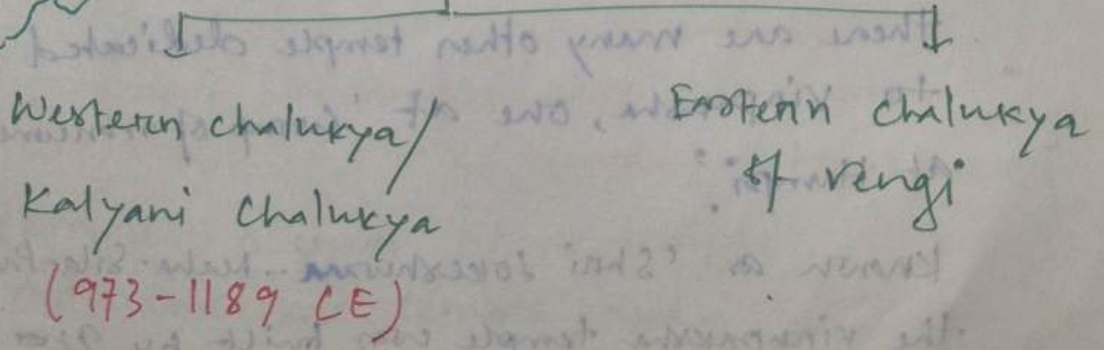 Western chalukya/
Kalyani Chalukya
(973-1189 CE)
Eastern chalukya
of vengi